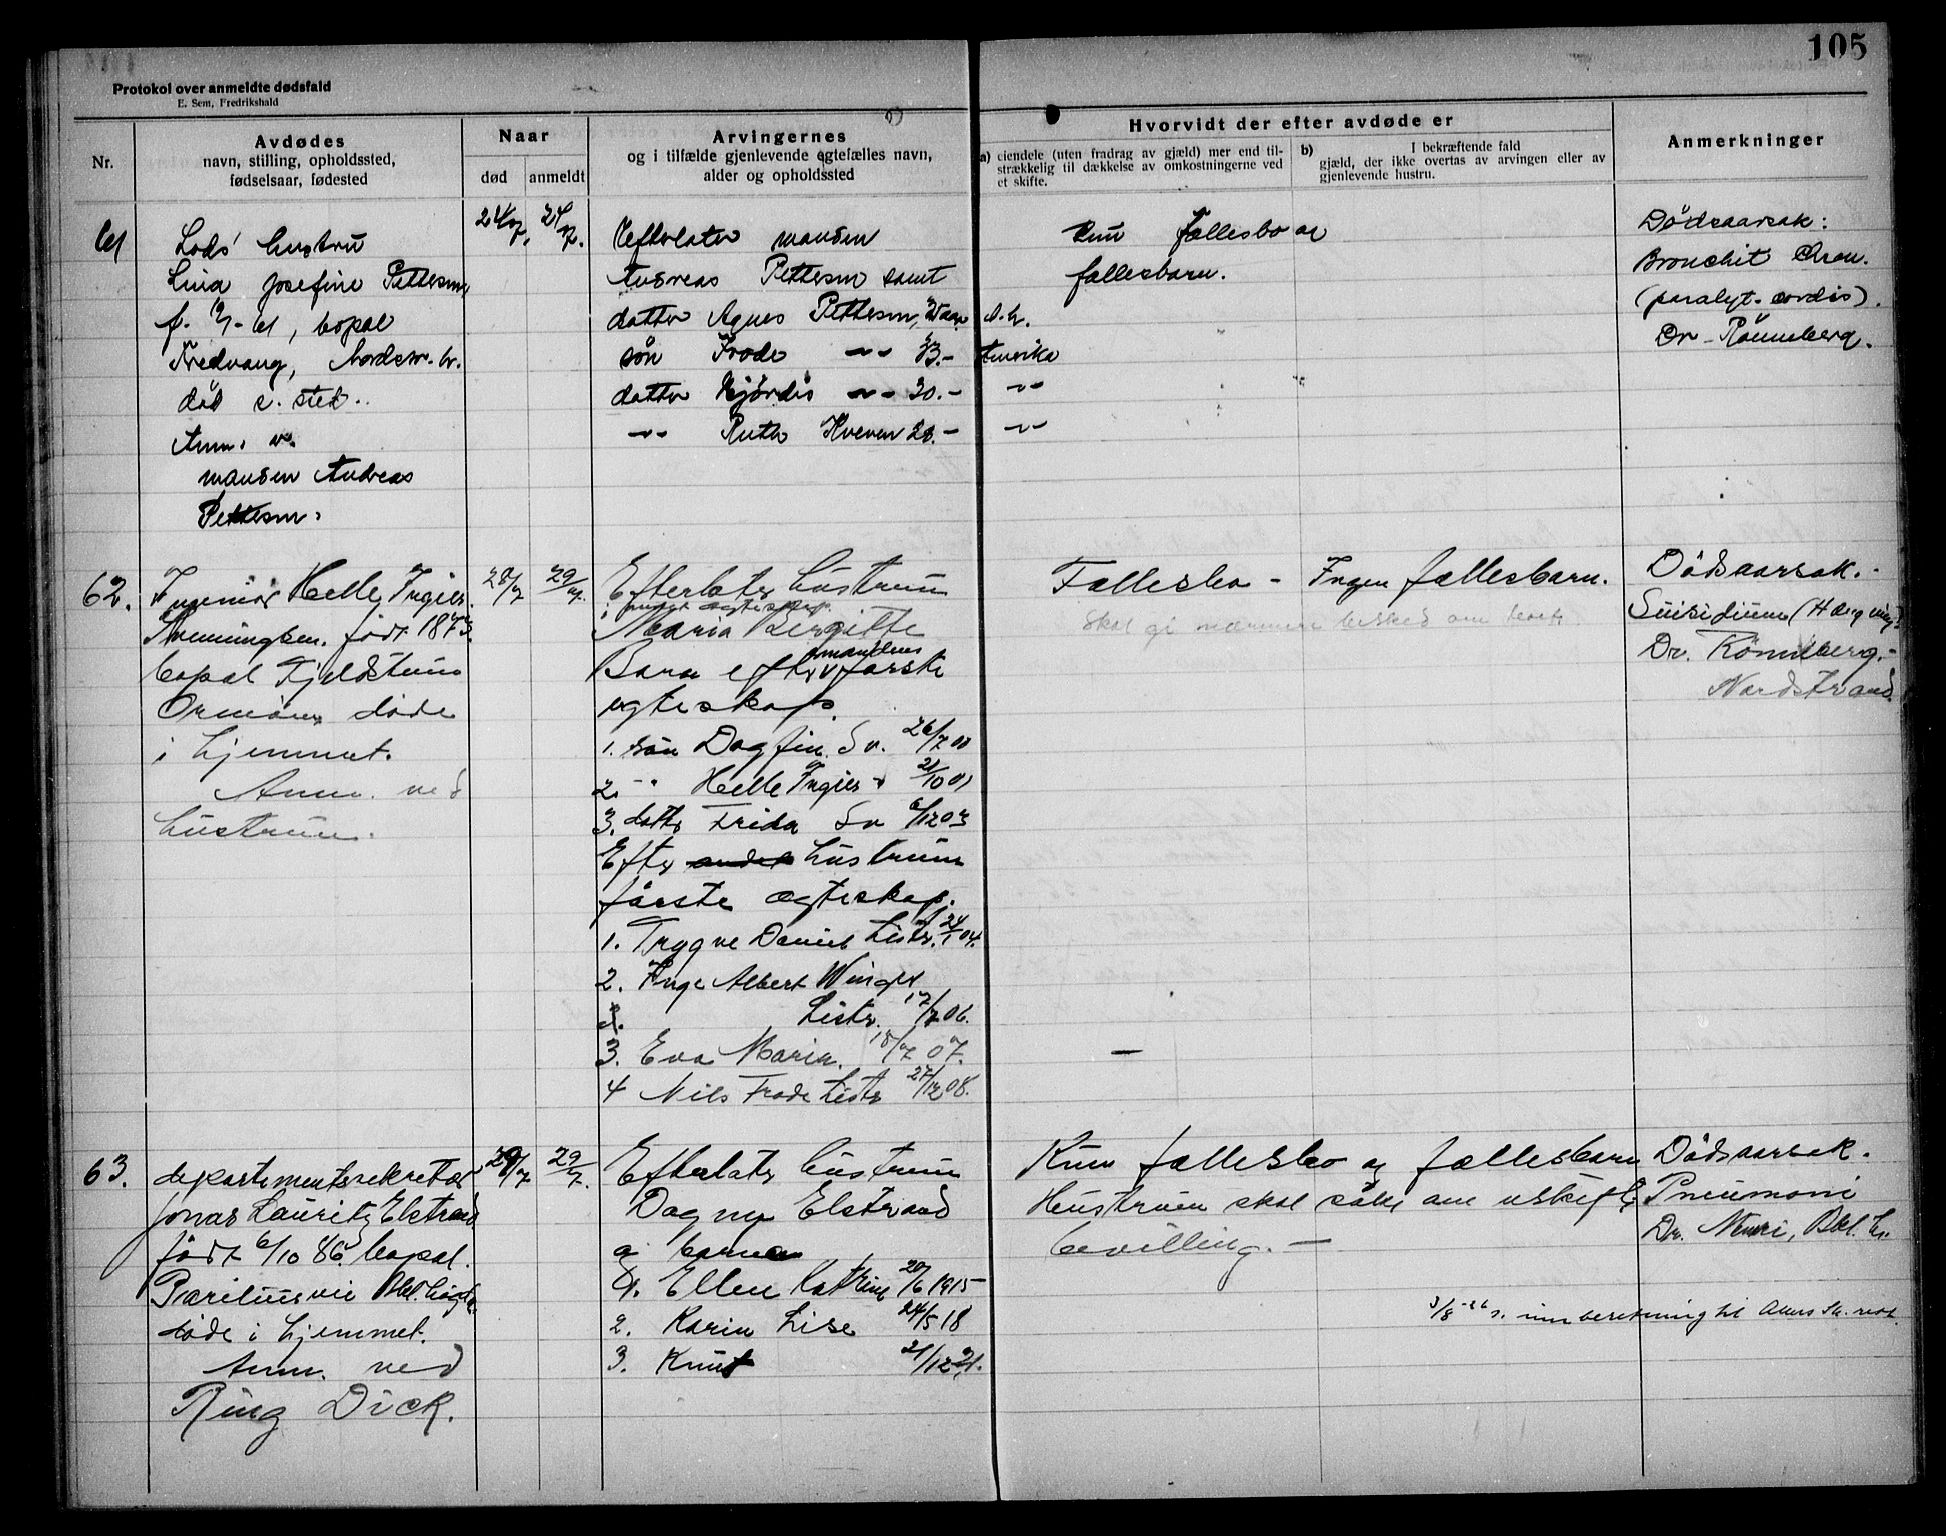 105
Protokol over anmeldte dødsfald
E. Sem, Fredrikshald
Nr.
Avdødes
navn, stilling, opholdssted,
fødselsaar, fødested
Naar
død
anmeldt
Arvingernes
og i tilfælde gjenlevende egtefælles navn,
alder og opholdssted
Hvorvidt der efter avdøde er
a) eiendele (uten fradrag av gjæld) mer end til-
strækkelig til dækkelse av omkostningerne ved
et skifte.
b) I bekræftende fald
gjæld, der ikke overtas av arvingen eller av
gjenlevende hustru.
Anmerkninger
61
Lods' hustru
Lina Josefine Pettersen,
f. -61, bopæl
Fredvang, Nordstr. h.
død s. sted.
Anm. v.
manden Andreas
Pettersen.
24/7. 24/7.
Efterlater manden
Andreas Pettersen samt
datter Agnes Pettersen,
søn Frode -"- 33.- Amerika
datter Hjördis -"- 30.- -"-
-"- Ruth 28.- -"-
Kun Fællesbo og
fællesbarn.
Dödsaarsak:
Bronchit Chron.
(paralyt. cordis).
Dr. Rönneberg.
62.
Ingeniör Helle Ingier
Svenningsen. født 1873.
bopæl Fjeldstuen
Ormöen døde
i hjemmet.
Anm. ved
hustruen.
28/7 29/7.
Efterlater hustruen
Maria Bergitte
Barn efter mandens første
egteskap.
1. søn Dagfin Sv. 26/7 00
2. -"- Helle Ingier " 21/10 01
3. datter Frida Sv 6/12 03
Efter andet hustruens
første ægteskap.
1. Trygve Daniel Listr. 24/1 04.
2. Inge Albert Winger
Listr. 17/7 06.
3. Eva Maria. 18/7 07.
4 Nils Frode Listr 27/12 08.
Fællesbo - Ingen fællesbarn.
Skal gi nærmere besked om
Dödsaarsak.-
Suisidium (Hængning)
Dr. Rönneberg.-
Nordstrand
63.
departementssekretær
Jonas Lauritz Elstrand
født 6/10 86. bopæl.
døde i hjemmet.
Anm. ved
Ring Dick.
29/7 29/7.
Efterlater hustruen
Dagny Elstrand
og barna
1. Ellen Katrine 20/6 1915
2. Karin Lise 24/5 18
3. Knut 21/12 21.
Kun fællesbo og fællesbarn
Hustruen skal søke om uskifte
bevilling. -
3/8-26 s. innberetning til Akers
Dödsaarsak.
Pneumoni
Dr.